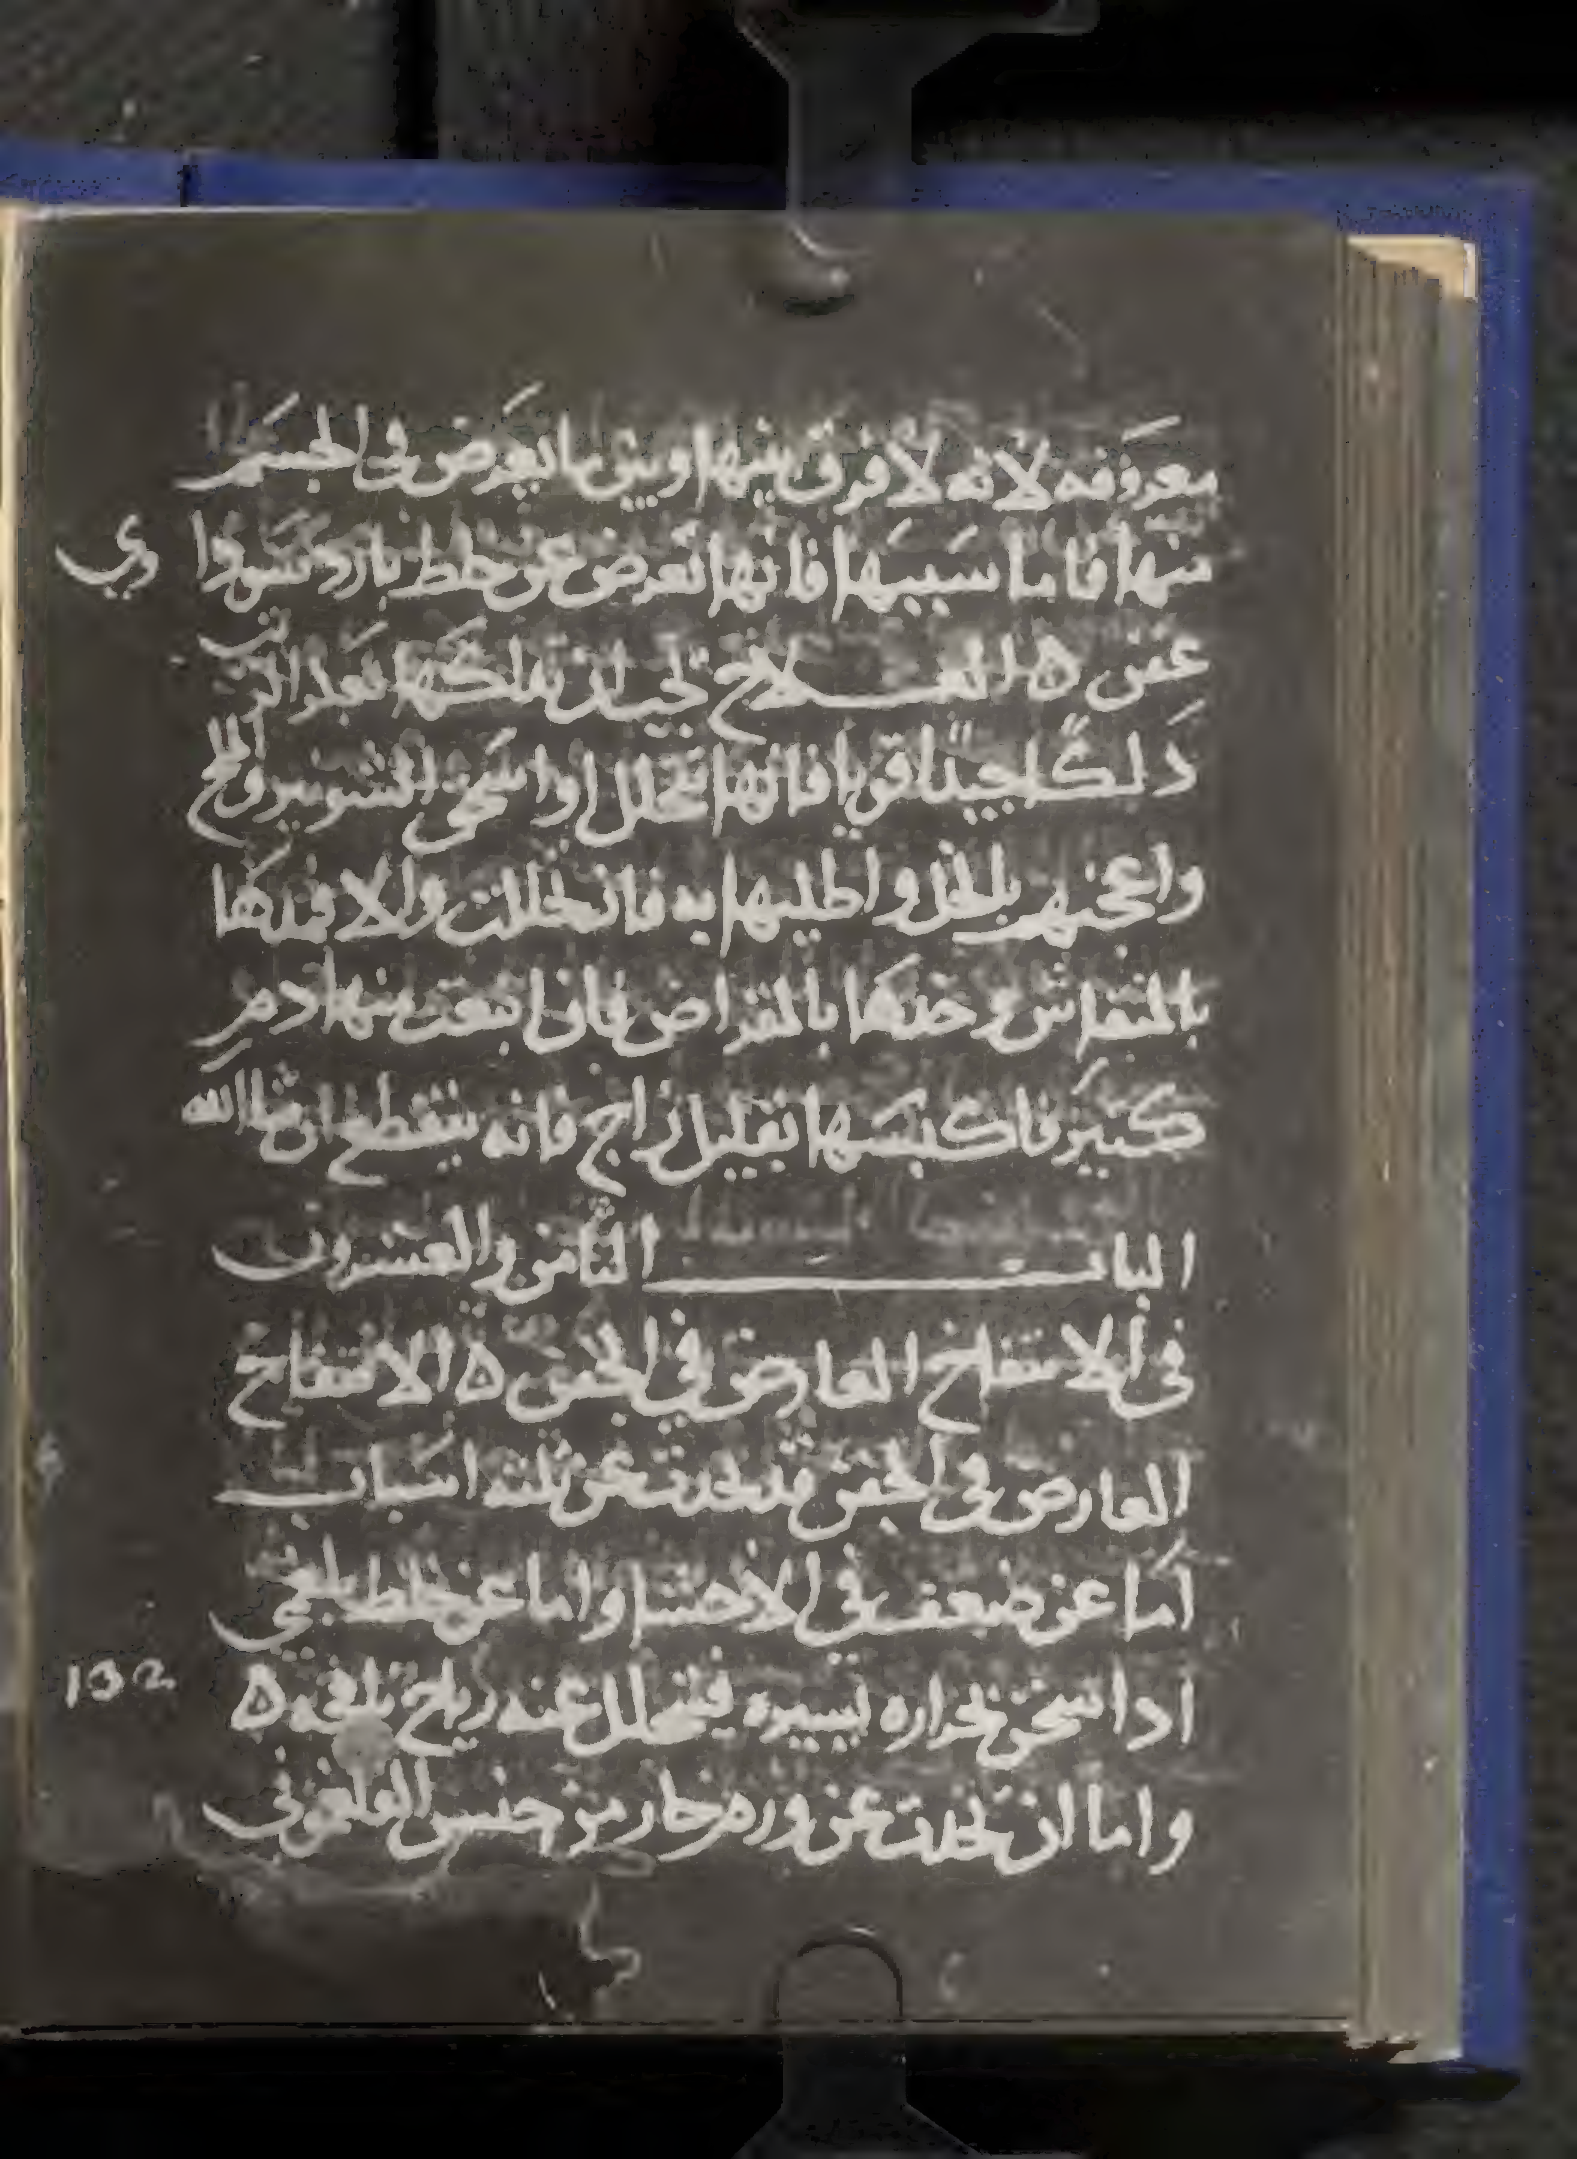 معروفه لانه لا فرق بينها وبين ما يعرض فى الجسم
منها فاما سببها فانها تعرض عن خلط بارد سودا وي
عفن ه العــلاج يجب ان تدلكها بعد التين
دلكًا جيدًا قويا فانها تتحلل او اسحق الشونيز والملح
واعجنهم بالخل واطليها به فان تحللت والا فمدها
بالمنقاش وخدها بالمقراض فان انبعت منها دم
كتير فاكبسها بقليل زاج فانه ينقطع ان شا الله
البابــــــ الثامن والعشرون
فى الانتفاخ العارض في الجفن ه الانتفاخ
العارض في الجفن قد يحدت عن ثلثه اسباب
اما عن ضعف في الاحشا واما عن خلط بلغمي
ادا سخن بحراره يسيره فيتحلل عنه رياح بلغميه ه
132
واما ان يحدت عن ورم حار من جنس الفلغموني